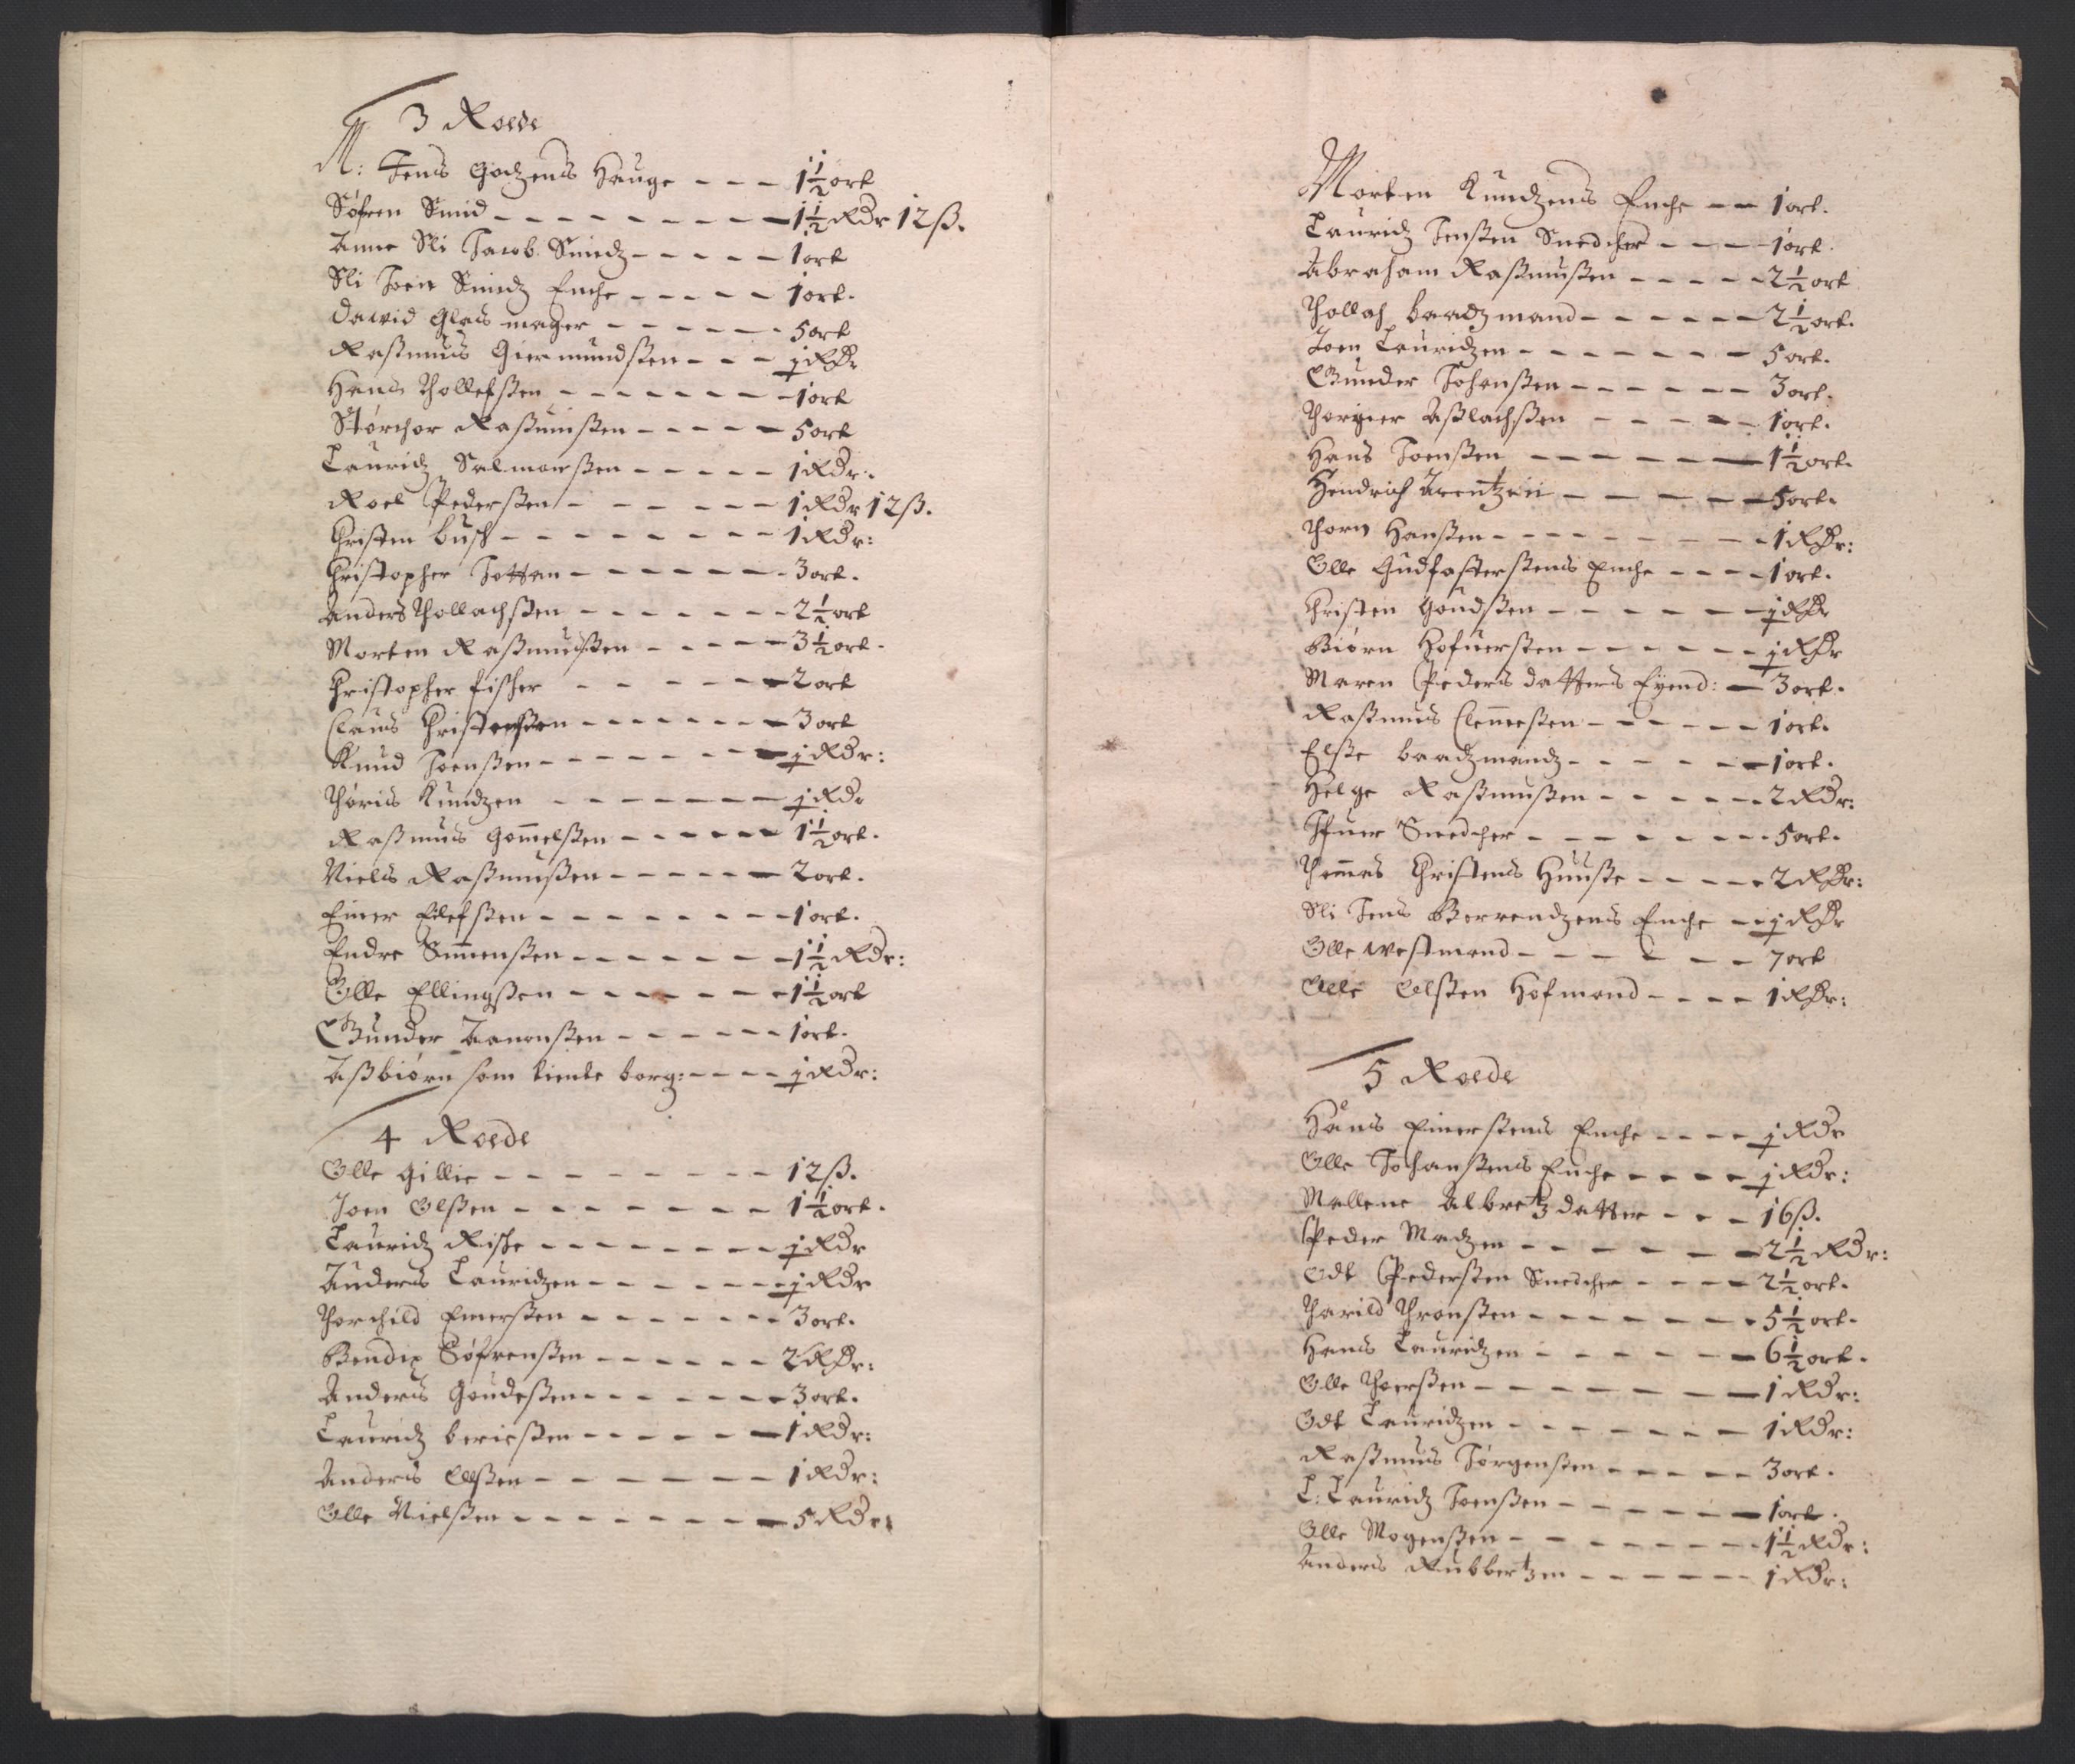 3 Roede
M: Jens Godzens Hauge - - - 1½ ort
Søfren Smid - - - - - - - - - 1½ Rdr 12 ß.
Anne Sli Jacob Smidz - - - - - 1 ort
Sli Joen Smidz Enche - - - - - 1 ort.
Dawid Glas mager - - - - - - 5 ort
Raßmus Giermundßen - - - j Rdr
Hans Thollefßen - - - - - - - 1 ort
Størchor Raßmußen - - - - - 5 ort
Lauridz Salmonßen - - - - - 1 Rdr.
Roel Pederßen - - - - - - 1 Rdr 12 ß.
Christen Busch - - - - - - - - 1 Rdr:
Christopher Jotten - - - - - - 3 ort.
Anders Thollachßen - - - - - - 2½ ort
Morten Raßmußen - - - - - 3½ ort.
Christopher fischer - - - - - - 2 ort
Claus Christenßen - - - - - - - 3 ort
Knud Joenßen - - - - - - - j Rdr:
Thøris Knudzen - - - - - - - j Rdr
Raßmus Gommelßen - - - - - - 1½ ort.
Niels Raßmußen - - - - - - 2 ort.
Einer Eilefßen - - - - - - - - 1 ort.
Endre Simmenßen - - - - - - - 1½ Rdr:
Olle Ellingßen - - - - - - - 1½ ort
Gunder Aanonßen - - - - - - 1 ort.
Aßbiørn som tiente borg: - - - - j Rdr:
4 Roede
Olle Gillie - - - - - - - - 12 ß.
Joen Olßen - - - - - - - 1½ ort.
Lauridz Rische - - - - - - - j Rdr
Anders Lauridzen - - - - - - j Rdr
Thorchild Einerßen - - - - - - - 3 ort.
Bendix Søfrenßen - - - - - - 2 Rdr:
Anders Goudeßen - - - - - - 3 ort.
Lauridz berießen - - - - - - 1 Rdr:
Anders Olßen - - - - - - - 1 Rdr:
Olle Nielßen - - - - - - - - 5 Rdr:
Morten Knudzens Enche - - 1 ort.
Lauridz Jenßen Snedcher - - - - 1 ort.
Abraham Raßmußen - - - - - 2½ ort
Thollach baadzmand - - - - - - 2½ ort.
Joen Lauridzen - - - - - - - 5 ort.
Gunder Johanßen - - - - - - 3 ort.
Thorgier Aßlachßen - - - - - 1 ort.
Hans Joenßen - - - - - - 1½ ort.
Hendrich Arentzen - - - - - - 5 ort.
Thorn Hanßen - - - - - - - - 1 Rdr:
Olle Gudfasterßens Enche - - - - 1 ort.
Christen Goudßen - - - - - - j Rdr
Biørn Hofuerßen - - - - - - j Rdr
Maren Peders datters Eyend: - 3 ort.
Raßmus Clemmeßen - - - - - - 1 ort.
Elße baadzmandz - - - - - - 1 ort.
Helge Raßmußen - - - - - - 2 Rdr:
Ifuer Snedcher - - - - - - - - 5 ort.
Thommas Christens Huuße - - - - - 2 Rdr:
Sli Jens Berrendzens Enche - - j Rdr
Olle westmand - - - - - - 7 ort
Olle Olßen Hofmand - - - - 1 Rdr:
5 Roede
Hans Einerßens Enche - - - - j Rdr
Olle Johanßens Enche - - - - j Rdr:
Mallene Albretzdatter - - - 16 ß.
Peder Madzen - - - - - - 2½ Rdr:
Odt Pederßen Snedcher - - - - 2½ ort.
Tharild Thronßen - - - - - - - 5½ ort.
Hans Lauridzen - - - - - - 6½ ort.
Olle Thoerßen - - - - - - - 1 Rdr:
Odt Lauridzen - - - - - - - 1 Rdr:
Raßmus Jørgenßen - - - - - 3 ort.
L: Lauridz Joenßen - - - - - - 1 ort.
Olle Mogenßen - - - - - - - - 1½ Rdr:
Anders Rubbertzen - - - - - - 1 Rdr: